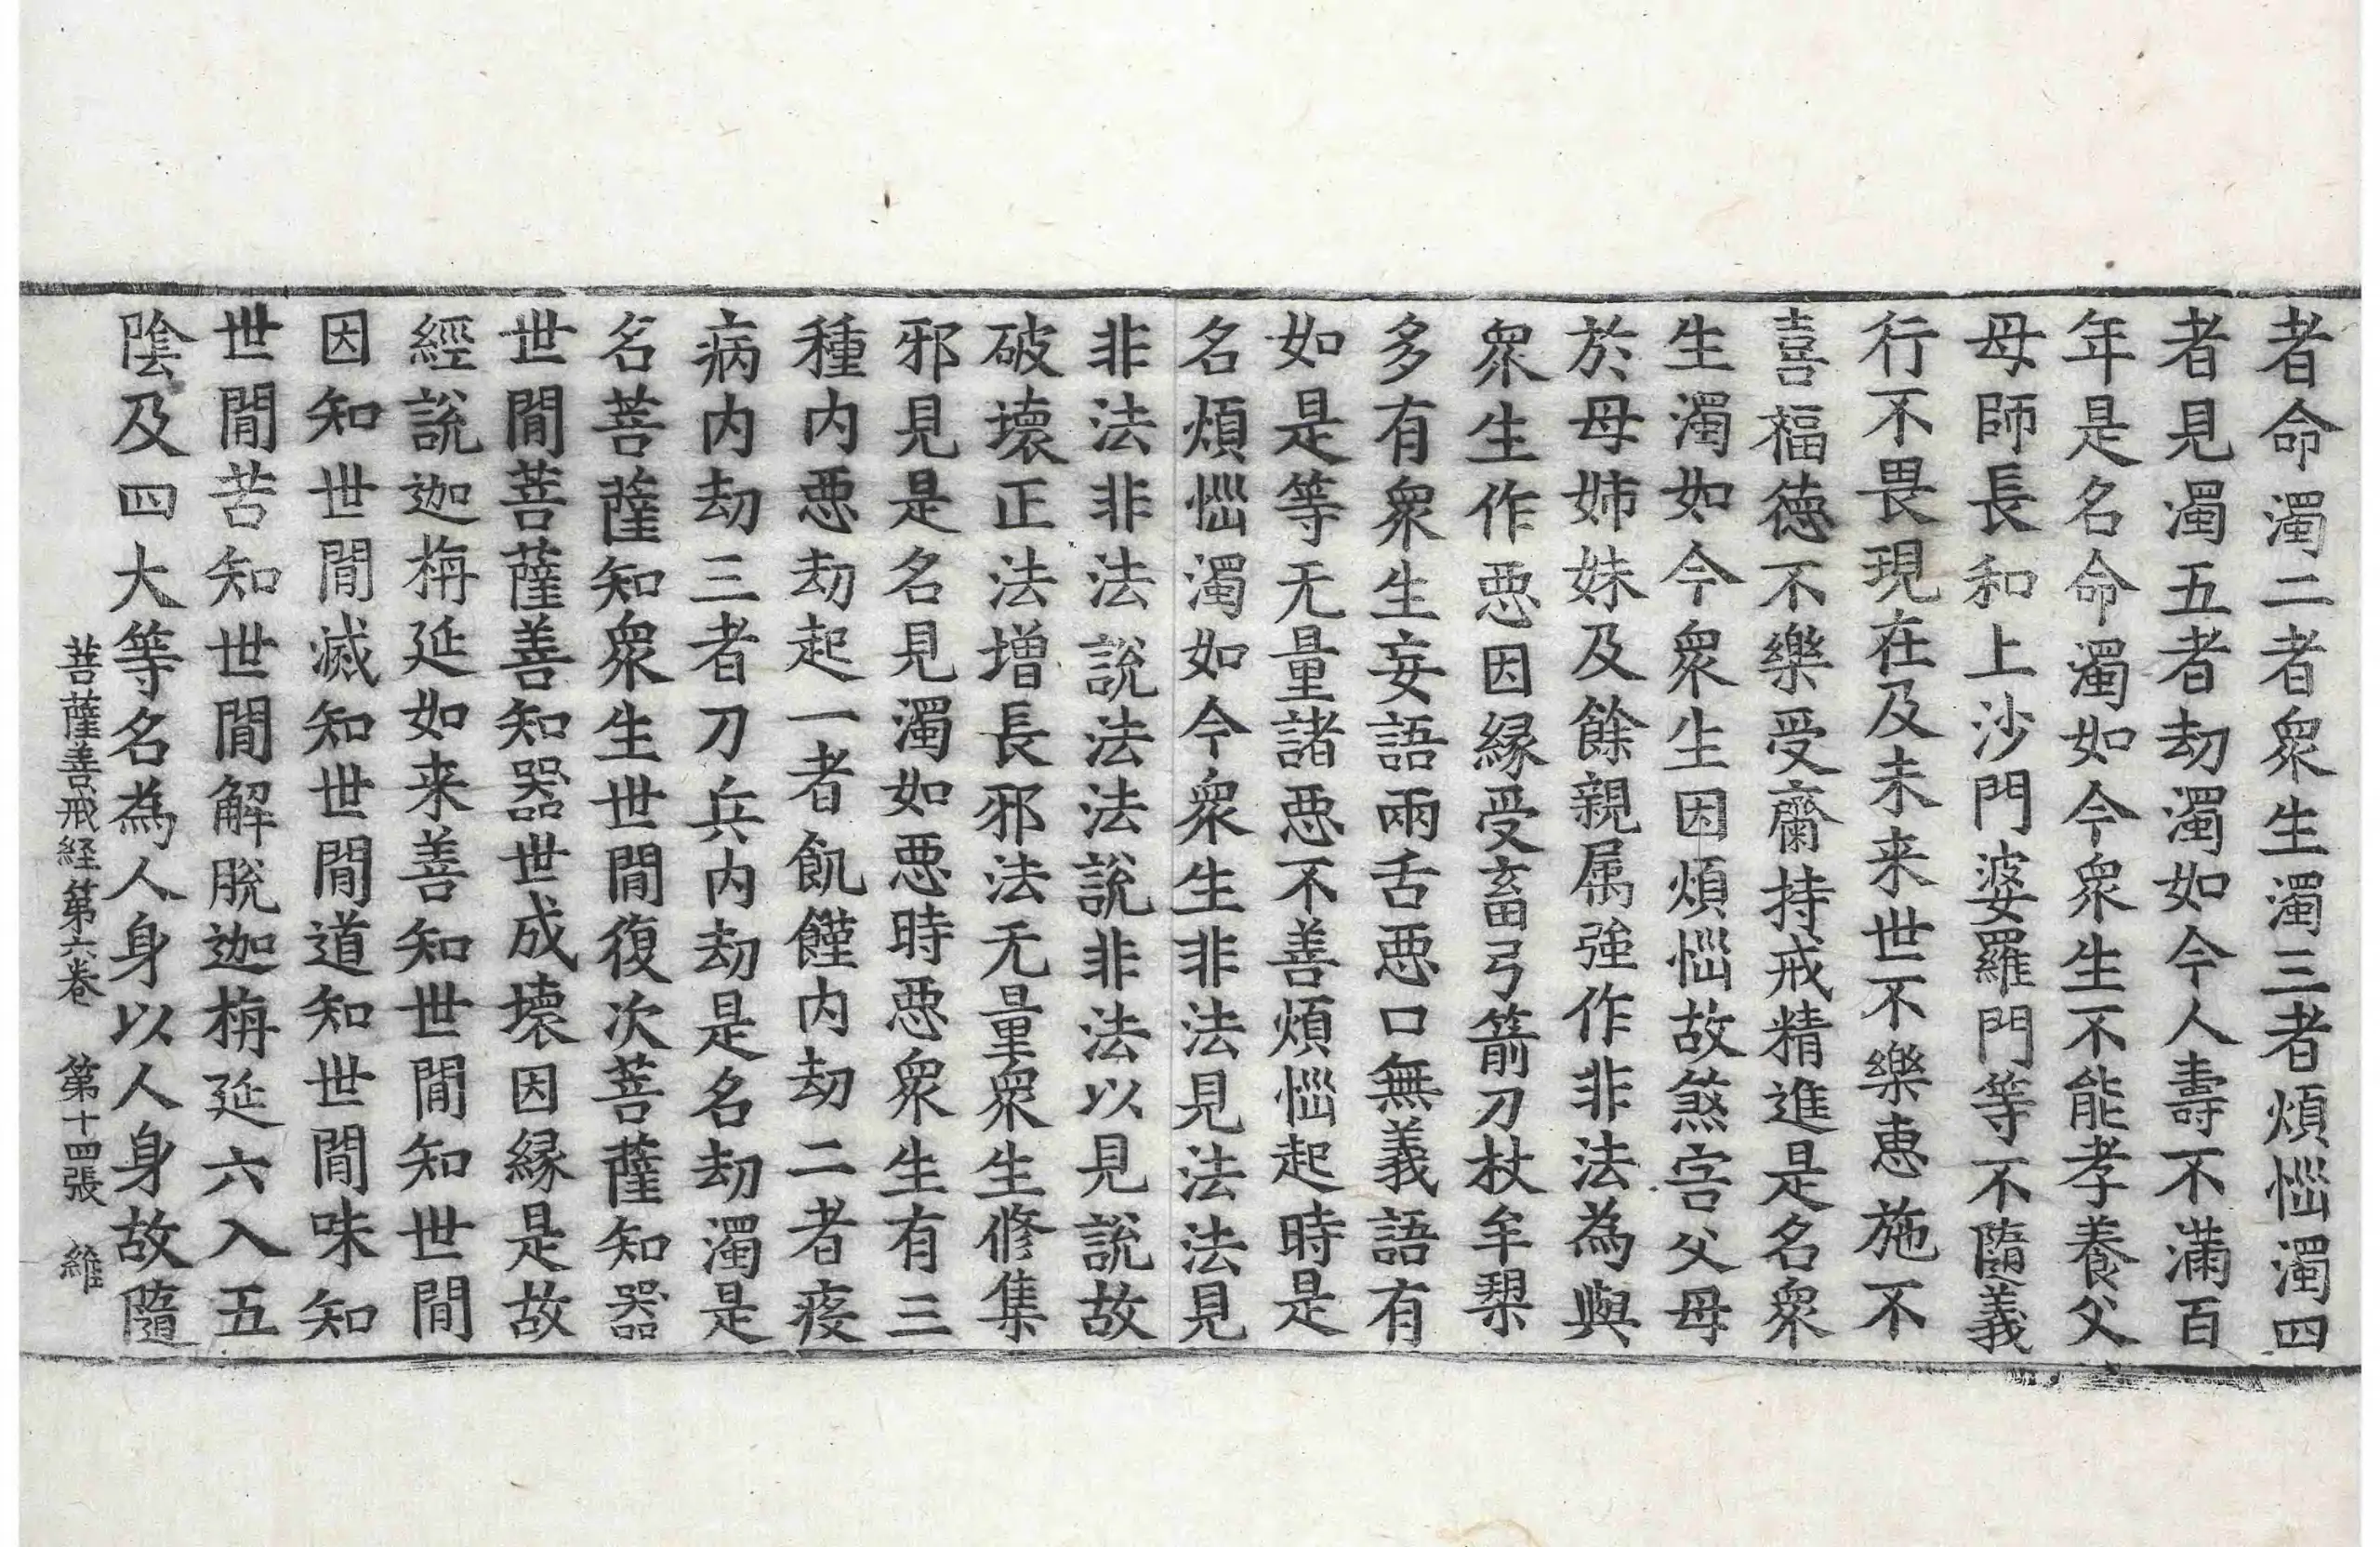 者命濁二者衆生濁三者煩惱濁四
者見濁五者劫濁如今人壽不滿百
年是名命濁如今衆生不能孝養父
母師長和上沙門婆羅門等不隨義
行不畏現在及未来世不樂恵施不
喜福德不樂受齋持戒精進是名衆
生濁如今衆生因煩惱故煞害父母
於母姉妹及餘親属強作非法為與
衆生作惡因縁受畜弓箭刀杖牟槊
多有衆生妄語兩舌惡口無義語有
如是等无量諸惡不善煩惱起時是
名煩惱濁如今衆生非法見法法見
非法非法說法法說非法以見說故
破壞正法增長邪法无量衆生修集
邪見是名見濁如惡時惡衆生有三
種内惡劫起一者飢饉内劫二者疫
病内劫三者刀兵内劫是名劫濁是
名菩薩知衆生世間復次菩薩知器
世間菩薩善知器世成壞因縁是故
經說迦栴延如来善知世間知世間
因知世間滅知世間道知世間味知
世間苦知世間解脫迦栴延六入五
陰及四大等名為人身以人身故隨
菩薩善戒経第六卷　第十四張　維